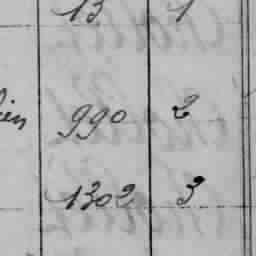 13 1
990 2
1302 3